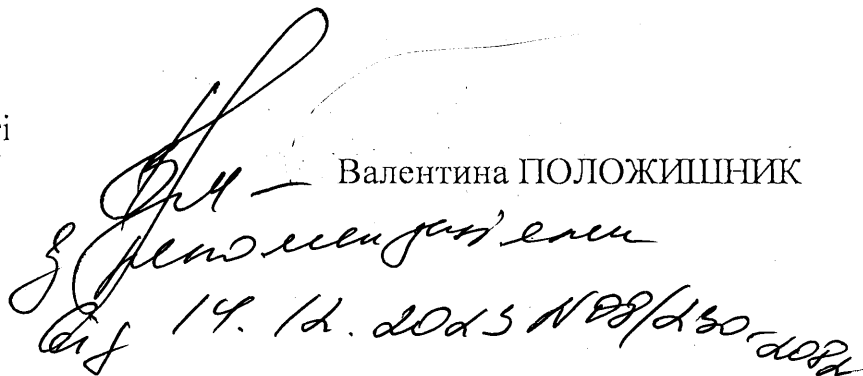 ті
Валентина ПОЛОЖИШНИК
з рекомендаціями
від 14.12.2023 №08/230-2082